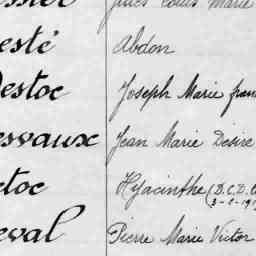 Jules Louis Marie
esté Abdon
estoc Joseph Marie fran
esvaux Jean Marie Désiré
etoc Hyacinthe (D.C.D.
eval Pierre Marie Victor